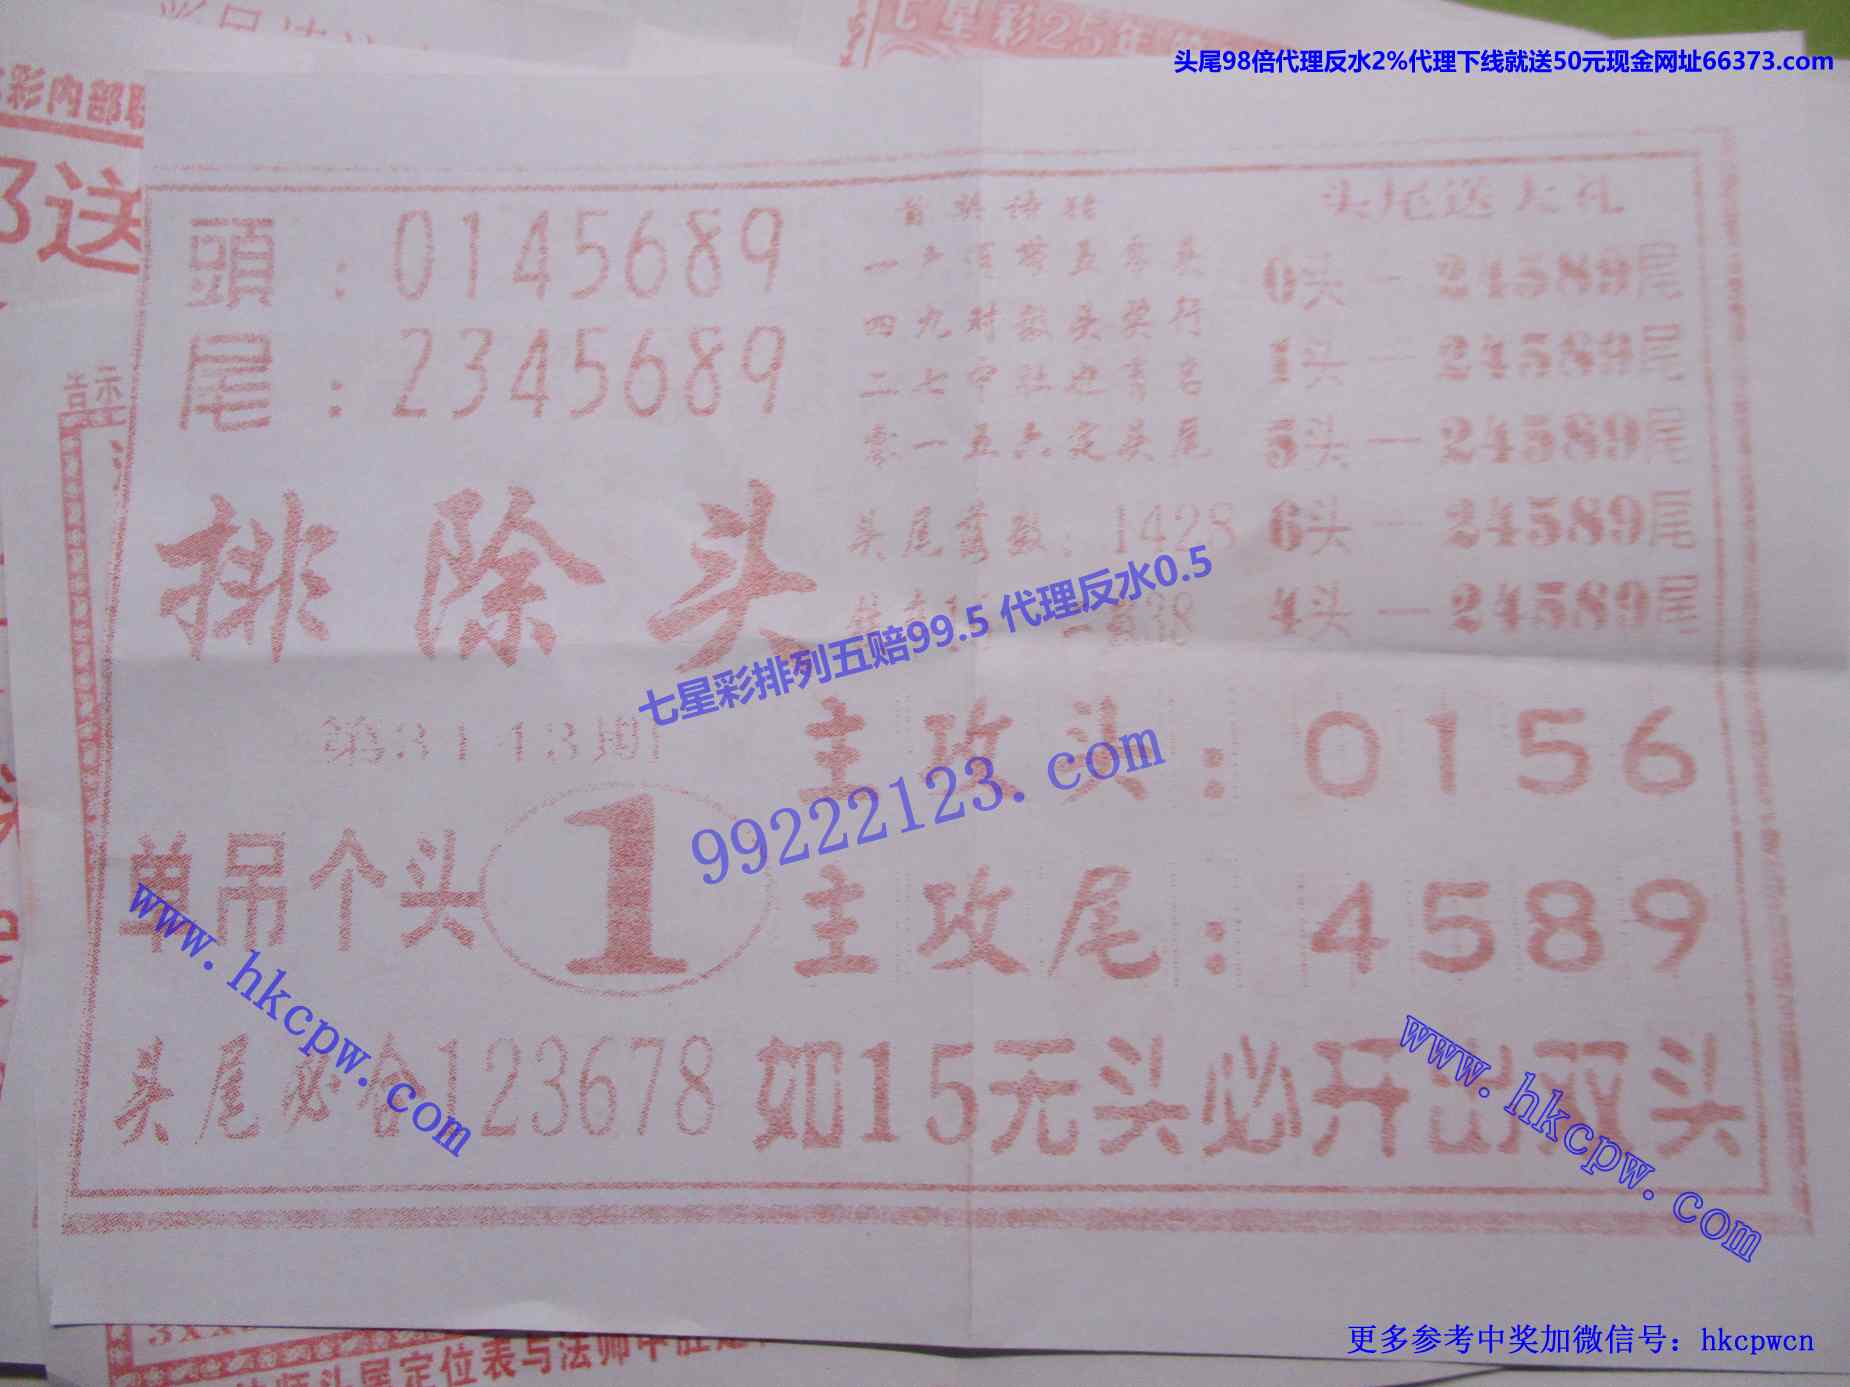 七星彩25年
头尾98倍代理反水2%代理下线就送50元现金网址66373.com
彩内部
送
頭：0145689
尾：2345689
排除头
第31 13期
单吊个头 1
头尾必合123678 如15无头必开出双头
四九对数头奖行
零一五六定头尾
头尾落数：1428
头尾送大礼
0头一24589尾
1头一24589尾
5头一24589尾
6头一24589尾
4头一24589尾
七星彩排列五赔99.5 代理反水0.5
99222123.com
主攻头：0156
主攻尾：4589
www.hkcpw.com
www.hkcpw.com
3XX
头尾定位表与法师
更多参考中奖加微信号：hkcpwcn